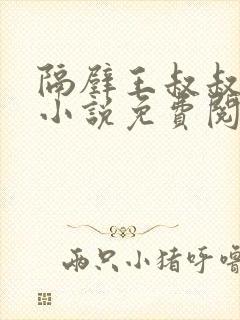 隔壁王叔叔
小說免費閱
兩只小猪呼嚕